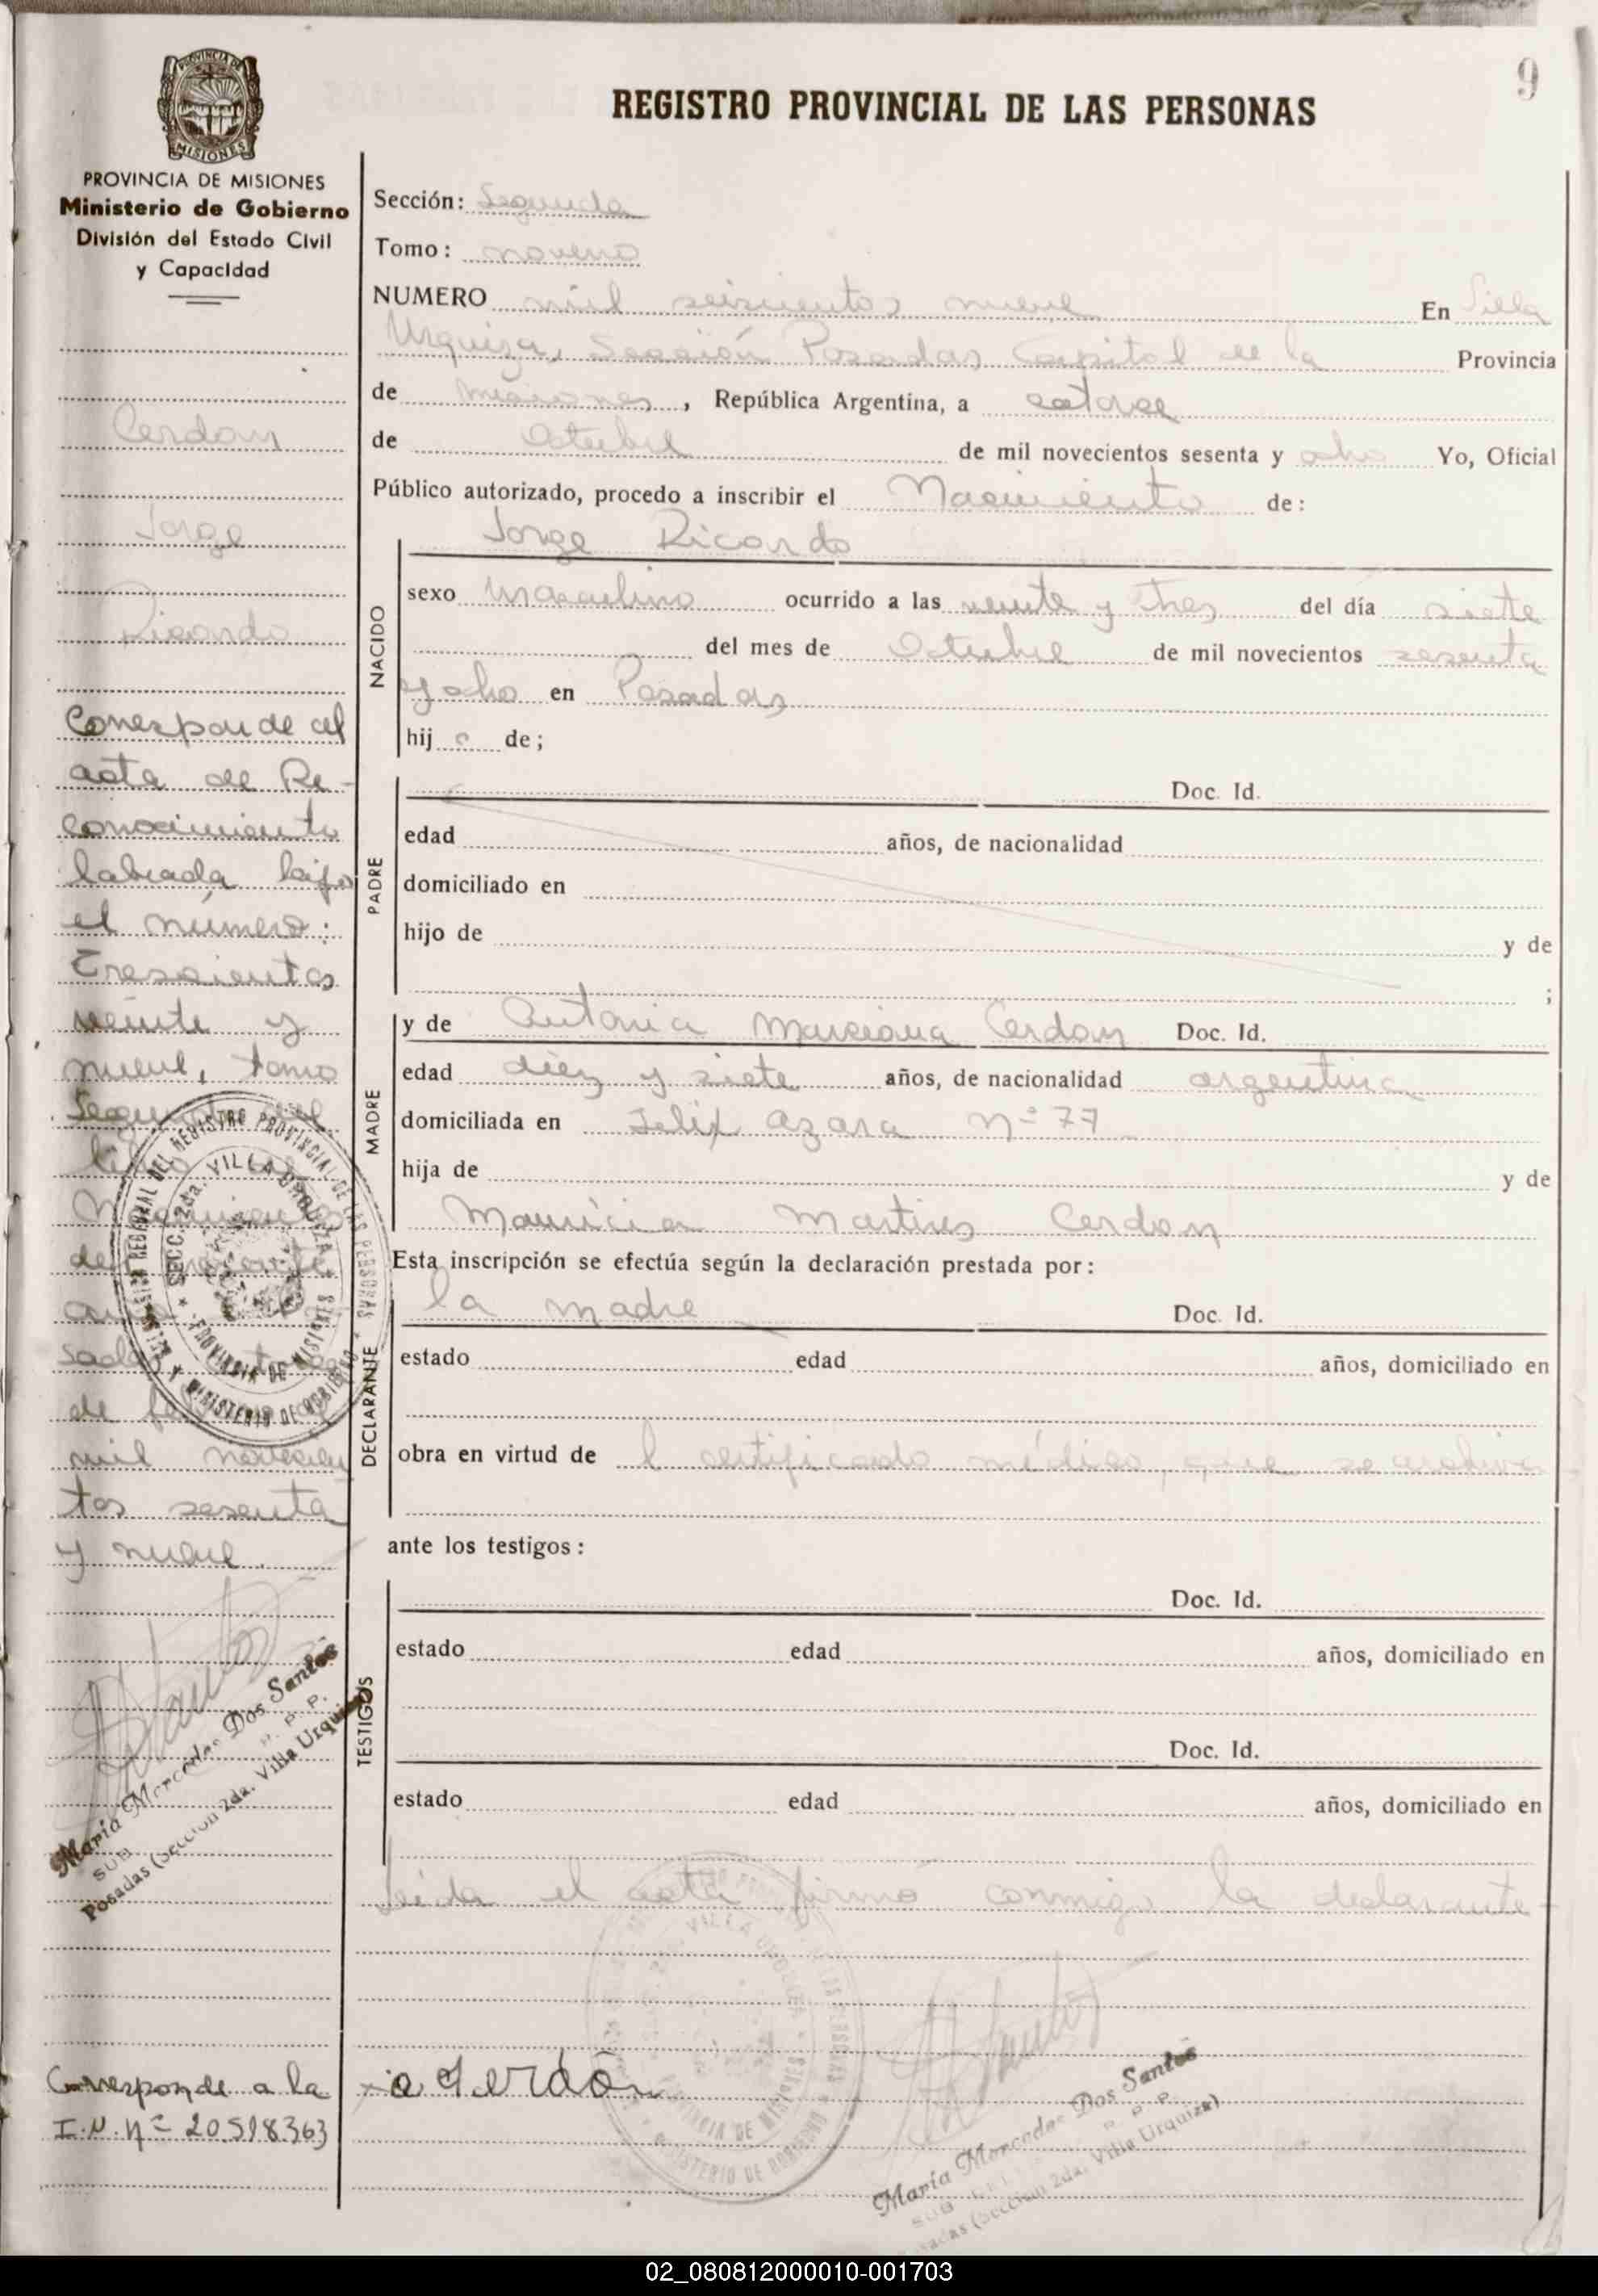 9
REGISTRO PROVINCIAL DE LAS PERSONAS
PROVINCIA DE MISIONES
PROVINCIA DE MISIONES
Ministerio de Gobierno
División del Estado Civil
y Capacidad
Cerdan
Jorge
Ricardo
Corresponde al
acta de Re-
conocimiento
labrada bajo
el número:
Trescientos
veinte y
nueve, tomo
Segundo del
de
mil novecien
tos sesenta
y nueve.
María Mercedes Dos Santos
Posadas (Sección 2da. Villa Urquiza)
Corresponde a la
I.N. Nº 20518363
Sección: Segunda
Tomo: noveno
NUMERO mil seiscientos nueve En Villa
Urquiza, Sección Posadas Capital de la Provincia
de Misiones, República Argentina, a catorce
de Octubre de mil novecientos sesenta y ocho Yo, Oficial
Público autorizado, procedo a inscribir el Nacimiento de:
Jorge Ricardo
NACIDO
sexo masculino ocurrido a las veinte y tres del día siete
del mes de Octubre de mil novecientos sesenta
y ocho en Posadas
hijo de;
PADRE
Doc. Id.
edad años, de nacionalidad
domiciliado en
hijo de y de
;
MADRE
y de Antonia Marciana Cerdan Doc. Id.
edad diez y siete años, de nacionalidad argentina
domiciliada en Felix Azara nº 77
hija de y de
Mauricia Martires Cerdan
Esta inscripción se efectúa según la declaración prestada por:
DECLARANTE
la madre Doc. Id.
estado edad años, domiciliado en
obra en virtud de l certificado médico, que se archiva
ante los testigos:
TESTIGOS
Doc. Id.
estado edad años, domiciliado en
Doc. Id.
estado edad años, domiciliado en
Leída el acta firmó conmigo la declarante-
a Cerdán
María Mercedes Dos Santos
(Sección 2da. Villa Urquiza)
REGISTRO PROVINCIAL DE LAS PERSONAS
SECC. 2da. VILLA URQUIZA
PROVINCIA DE MISIONES
MINISTERIO DE GOBIERNO
02_080812000010-001703